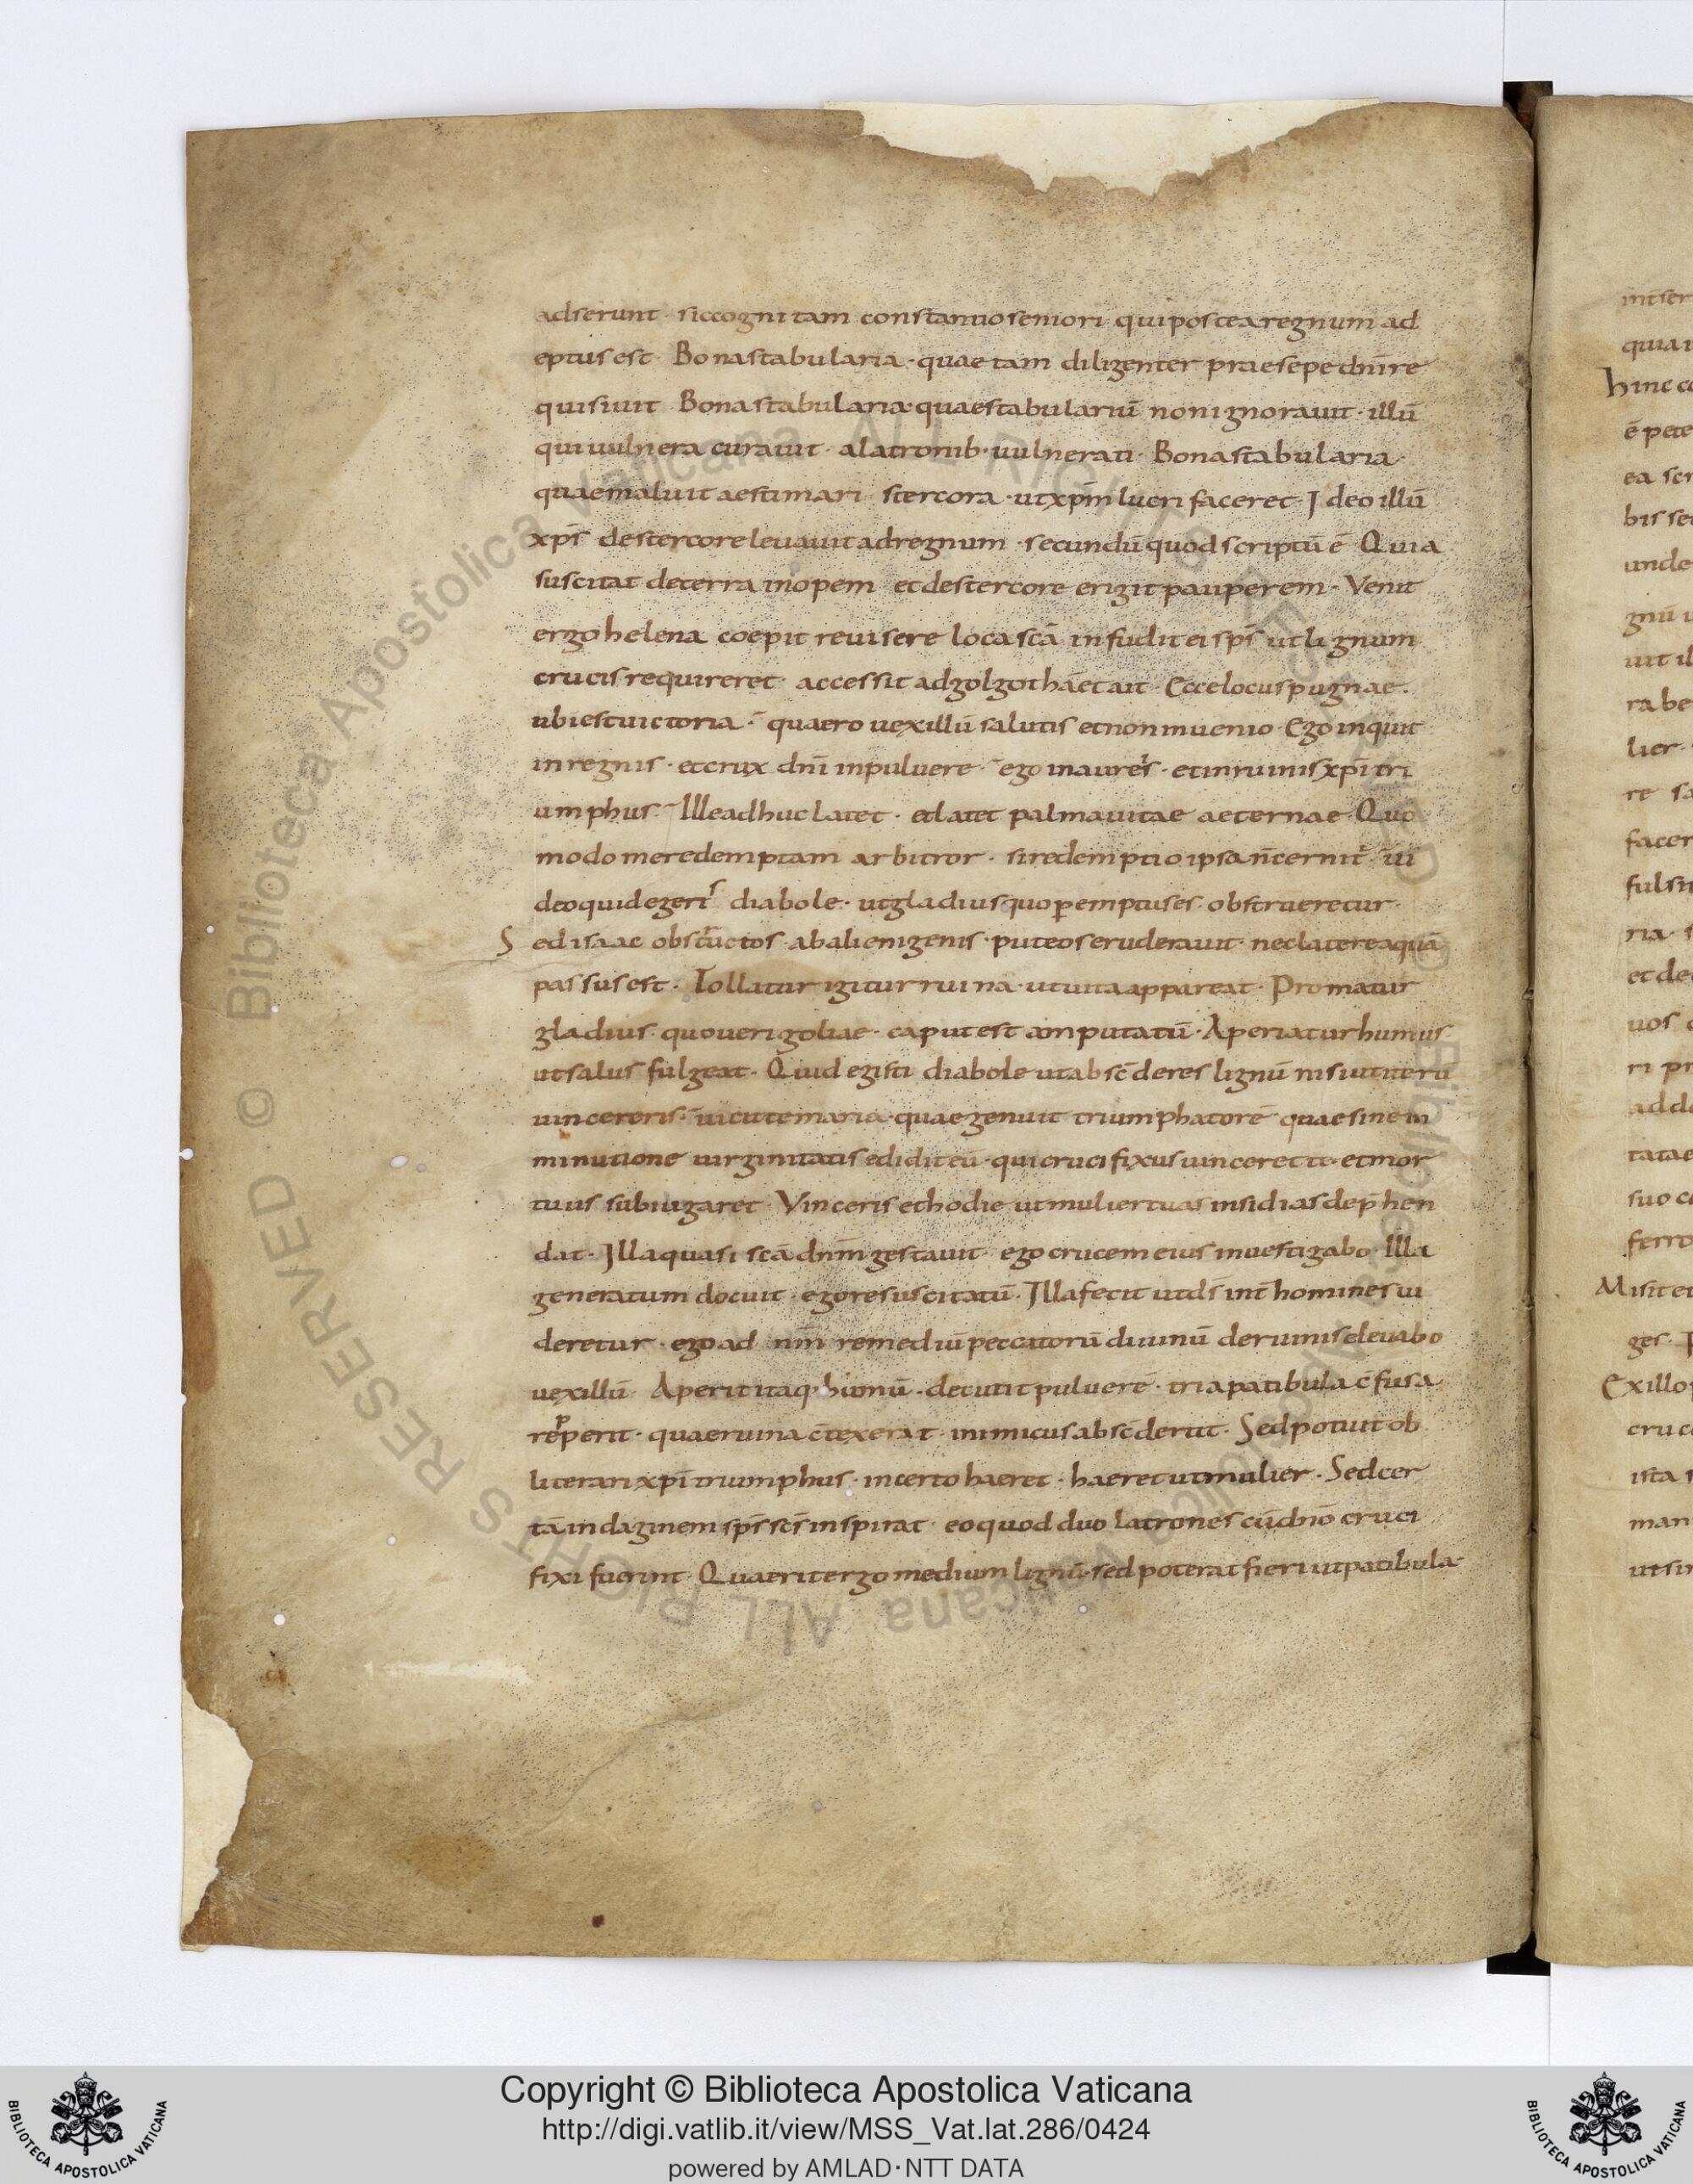 adserunt · sic cognitam constantio seniori qui postea regnum ad
eptus est · Bona stabularia · quae tam diligenter praesepe dn̄i re
quisiuit Bona stabularia · quae stabulariū non ignorauit · illū
qui uulnera curauit · a latronib · uulnerati · Bona stabularia ·
quae maluit aestimari stercora · ut xp̄m lucri faceret · Ideo illū
xp̄s de stercore leuauit ad regnum · secundū quod scriptū ē Quia
suscitat de terra inopem et de stercore erigit pauperem · Venit
ergo helena coepit reuisere loca scā infudit ei sp̄s ut lignum
crucis requireret · accessit ad golgotha et ait · Ecce locus pugnae ·
ubi est uictoria · quaero uexillū salutis et non inuenio · Ego inquit
in regnis · et crux dn̄i in puluere · ego in aureis · et in ruinis xp̄i tri
umphus · Ille adhuc latet · et latet palma uitae aeternae Quo
modo me redemptam arbitror · si redemptio ipsa n̄ cernit̄ ui
deo quid egeris diabole · ut gladius quo peremptus es obstrueretur ·
Sed isaac obstructos ab alienigenis · puteos eruderauit · nec latere aquā
passus est · Tollatur igitur ruina · ut uita appareat · Promatur
gladius · quo ueri goliae · caput est amputatū · Aperiatur humus
ut salus fulgeat · Quid egisti diabole ut abscōderes lignū nisi ut iterū
uincereris · uicit te maria · quae genuit triumphatorē quae sine in
minutione uirginitatis edidit eū · qui crucifixus uinceret te · et mor
tuus subiugaret · Vinceris et hodie ut mulier tuas insidias dep̄hen
dat · Illa quasi scā dn̄m gestauit · ego crucem eius inuestigabo · Illa
generatum docuit · ego resuscitatū · Illa fecit ut ds̄ int̄ homines ui
deretur · ego ad nr̄m remediū peccatorū diuinū de ruinis eleuabo
uexillū · Aperit itaq · humū · decutit puluerē · tria patibula c̄fusa
repperit · quae ruina c̄texerat · inimicus absc̄derat · Sed potuit ob
literari xp̄i triumphus · incerto haeret · haeret ut mulier · Sed cer
tā indaginem sp̄s sc̄s inspirat · eo quod duo latrones cū dn̄o cruci
fixi fuerint · Quaerit ergo medium lignū · sed poterat fieri ut patibula ·
hinc
ē pete
bis
unde
ferro
Misit
ges ·
cruce
ista
Copyright © Biblioteca Apostolica Vaticana
http://digi.vatlib.it/view/MSS_Vat.lat.286/0424
powered by AMLAD·NTT DATA
BIBLIOTECA APOSTOLICA VATICANA
BIBLIOTECA APOSTOLICA VATICANA
© Biblioteca Apostolica Vaticana ALL RIGHTS RESERVED
© Biblioteca Apostolica Vaticana ALL RIGHTS RESERVED